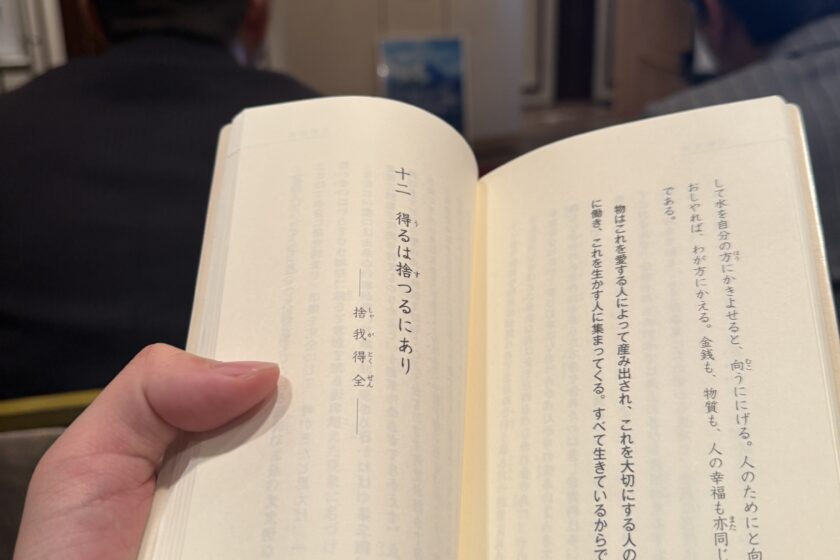 して水を自分の方にかきよせると、向うににげる。人のためにと向
おしやれば、わが方にかえる。金銭も、物質も、人の幸福も亦同じ
である。
物はこれを愛する人によって産み出され、これを大切にする人の
に働き、これを生かす人に集まってくる。すべて生きているからで
十二　得るは捨つるにあり
――捨我得全――